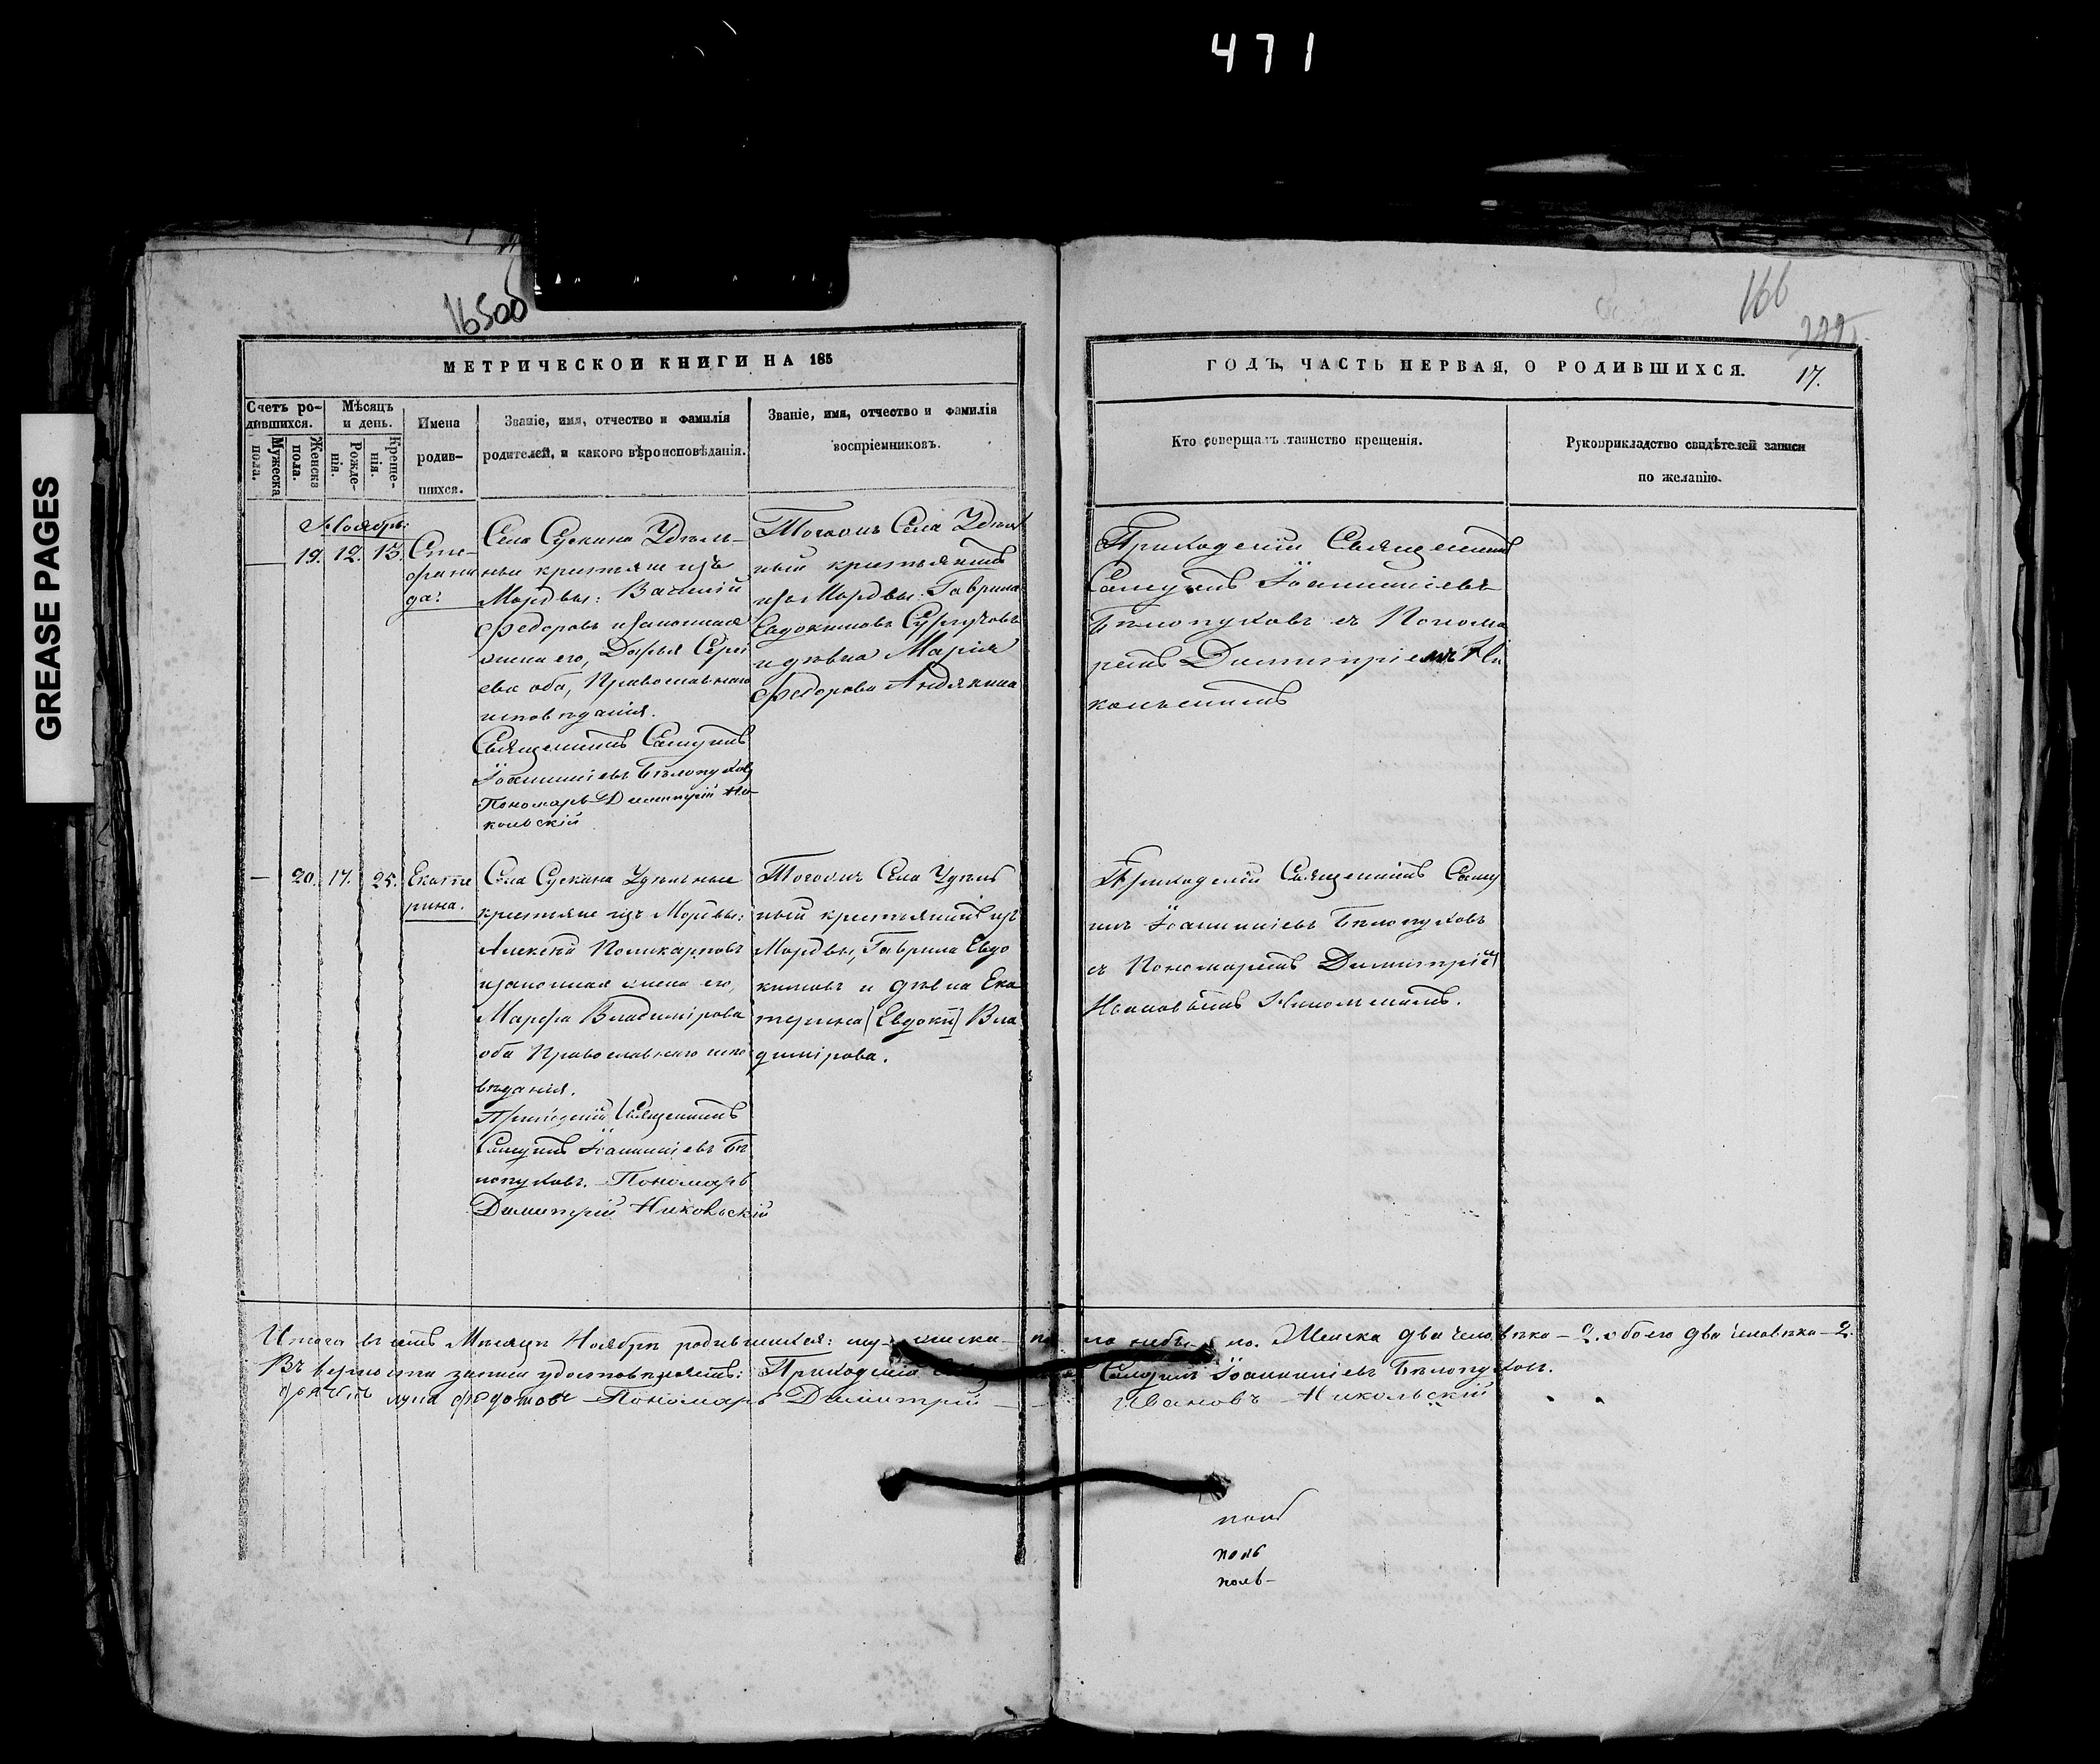 471
GREASE PAGES
165об
166
МЕТРИЧЕСКОЙ КНИГИ НА 185
ГОДЪ, ЧАСТЬ ПЕРВАЯ, О РОДИВШИХСЯ.
17.
Счетъ ро-
дившихся.
Мужеска
пола.
Женска
пола.
Мѣсяцъ
и день.
Рожде-
нія.
Креще-
нія.
Имена
родив-
шихся.
Званіе, имя, отчество и фамилія
родителей, и какого вѣроисповѣданія.
Званіе, имя, отчество и фамилія
воспріемниковъ.
Кто совершалъ таинство крещенія.
Рукоприкладство свидѣтелей записи
по желанію.
Ноябрь:
— 19. 12. 13.
Сте-
фани
да.
Села Сускана Удѣль-
ные крестьяне изъ
Мордвы: Василій
Федоровъ и законная
жена его, Дарья Серге
ева оба, Православнаго
исповѣданія.
Священникъ Самуилъ
Іоанникіевъ Бѣлопуховъ
Пономарь Димитрій Ни-
кольскій
Тогожъ Села Удѣль
ный крестьянинъ
изъ Мордвы: Гаврила
Евдокимовъ
и дѣвка Марія
Федорова
Приходскій Священникъ
Самуилъ Іоанникіевъ
Бѣлопуховъ съ Понома
ремъ Димитріемъ Ни
кольскимъ
— 20. 17. 25.
Екате
рина.
Села Сускана Удѣльные
крестьяне изъ Мордвы:
Алексѣй Поликарповъ
и законная жена его,
Марфа Владимірова
оба Православнаго испо
вѣданія.
Приходскій Священникъ
Самуилъ Іоанникіевъ Бѣ
лопуховъ. Пономарь
Димитрій Никольскій
Тогожъ Села Удѣль
ный крестьянинъ изъ
Мордвы, Гаврила Евдо
кимовъ и дѣвка Ека
терина [Евдоки] Вла
димірова.
Приходскій Священникъ Саму
илъ Іоанникіевъ Бѣлопуховъ
съ Пономаремъ Димитріем
Ивановымъ Никольскимъ.
Итого въ семъ Мѣсяцѣ Ноябрѣ родившихся: му- жеска по ло небы ло. Женска два человѣка — 2. обоего два человѣка — 2.
Въ верности записи удостовѣряемъ: Приходскій Самуилъ Іоанникіевъ Бѣлопуховъ.
Дьячекъ Лука Федотовъ Пономарь Димитрій Ивановъ Никольскій
поль
поль
поль-